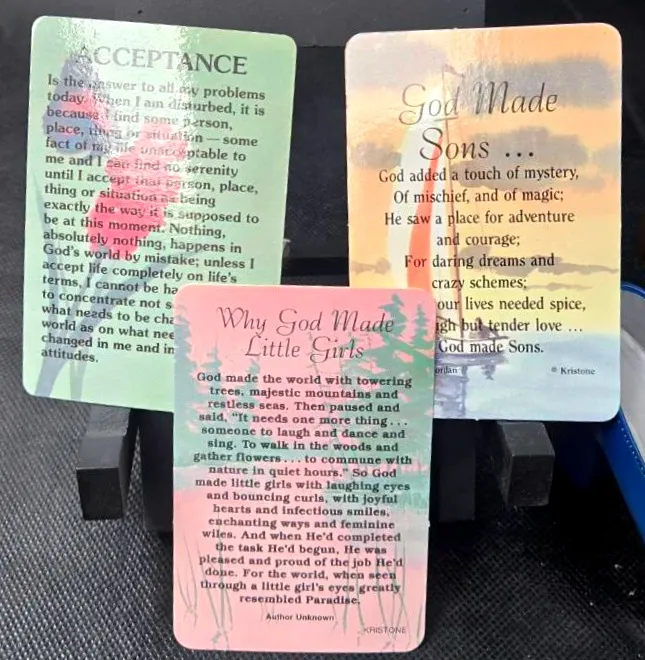 ACCEPTANCE
Is the answer to all my problems
today. When I am disturbed, it is
because I find some person,
place, thing or situation — some
fact of my life unacceptable to
me and I can find no serenity
until I accept that person, place,
thing or situation as being
exactly the way it is supposed to
be at this moment. Nothing,
absolutely nothing, happens in
God's world by mistake; unless I
accept life completely on life's
terms, I cannot be ha
to concentrate not s
what needs to be cha
world as on what nee
changed in me and in
attitudes.
God Made
Sons ...
God added a touch of mystery,
Of mischief, and of magic;
He saw a place for adventure
and courage;
For daring dreams and
crazy schemes;
our lives needed spice,
gh but tender love ...
God made Sons.
ordan
© Kristone
Why God Made
Little Girls
God made the world with towering
trees, majestic mountains and
restless seas. Then paused and
said, "It needs one more thing...
someone to laugh and dance and
sing. To walk in the woods and
gather flowers...to commune with
nature in quiet hours." So God
made little girls with laughing eyes
and bouncing curls, with joyful
hearts and infectious smiles,
enchanting ways and feminine
wiles. And when He'd completed
the task He'd begun, He was
pleased and proud of the job He'd
done. For the world, when seen
through a little girl's eyes greatly
resembled Paradise.
Author Unknown
KRISTONE